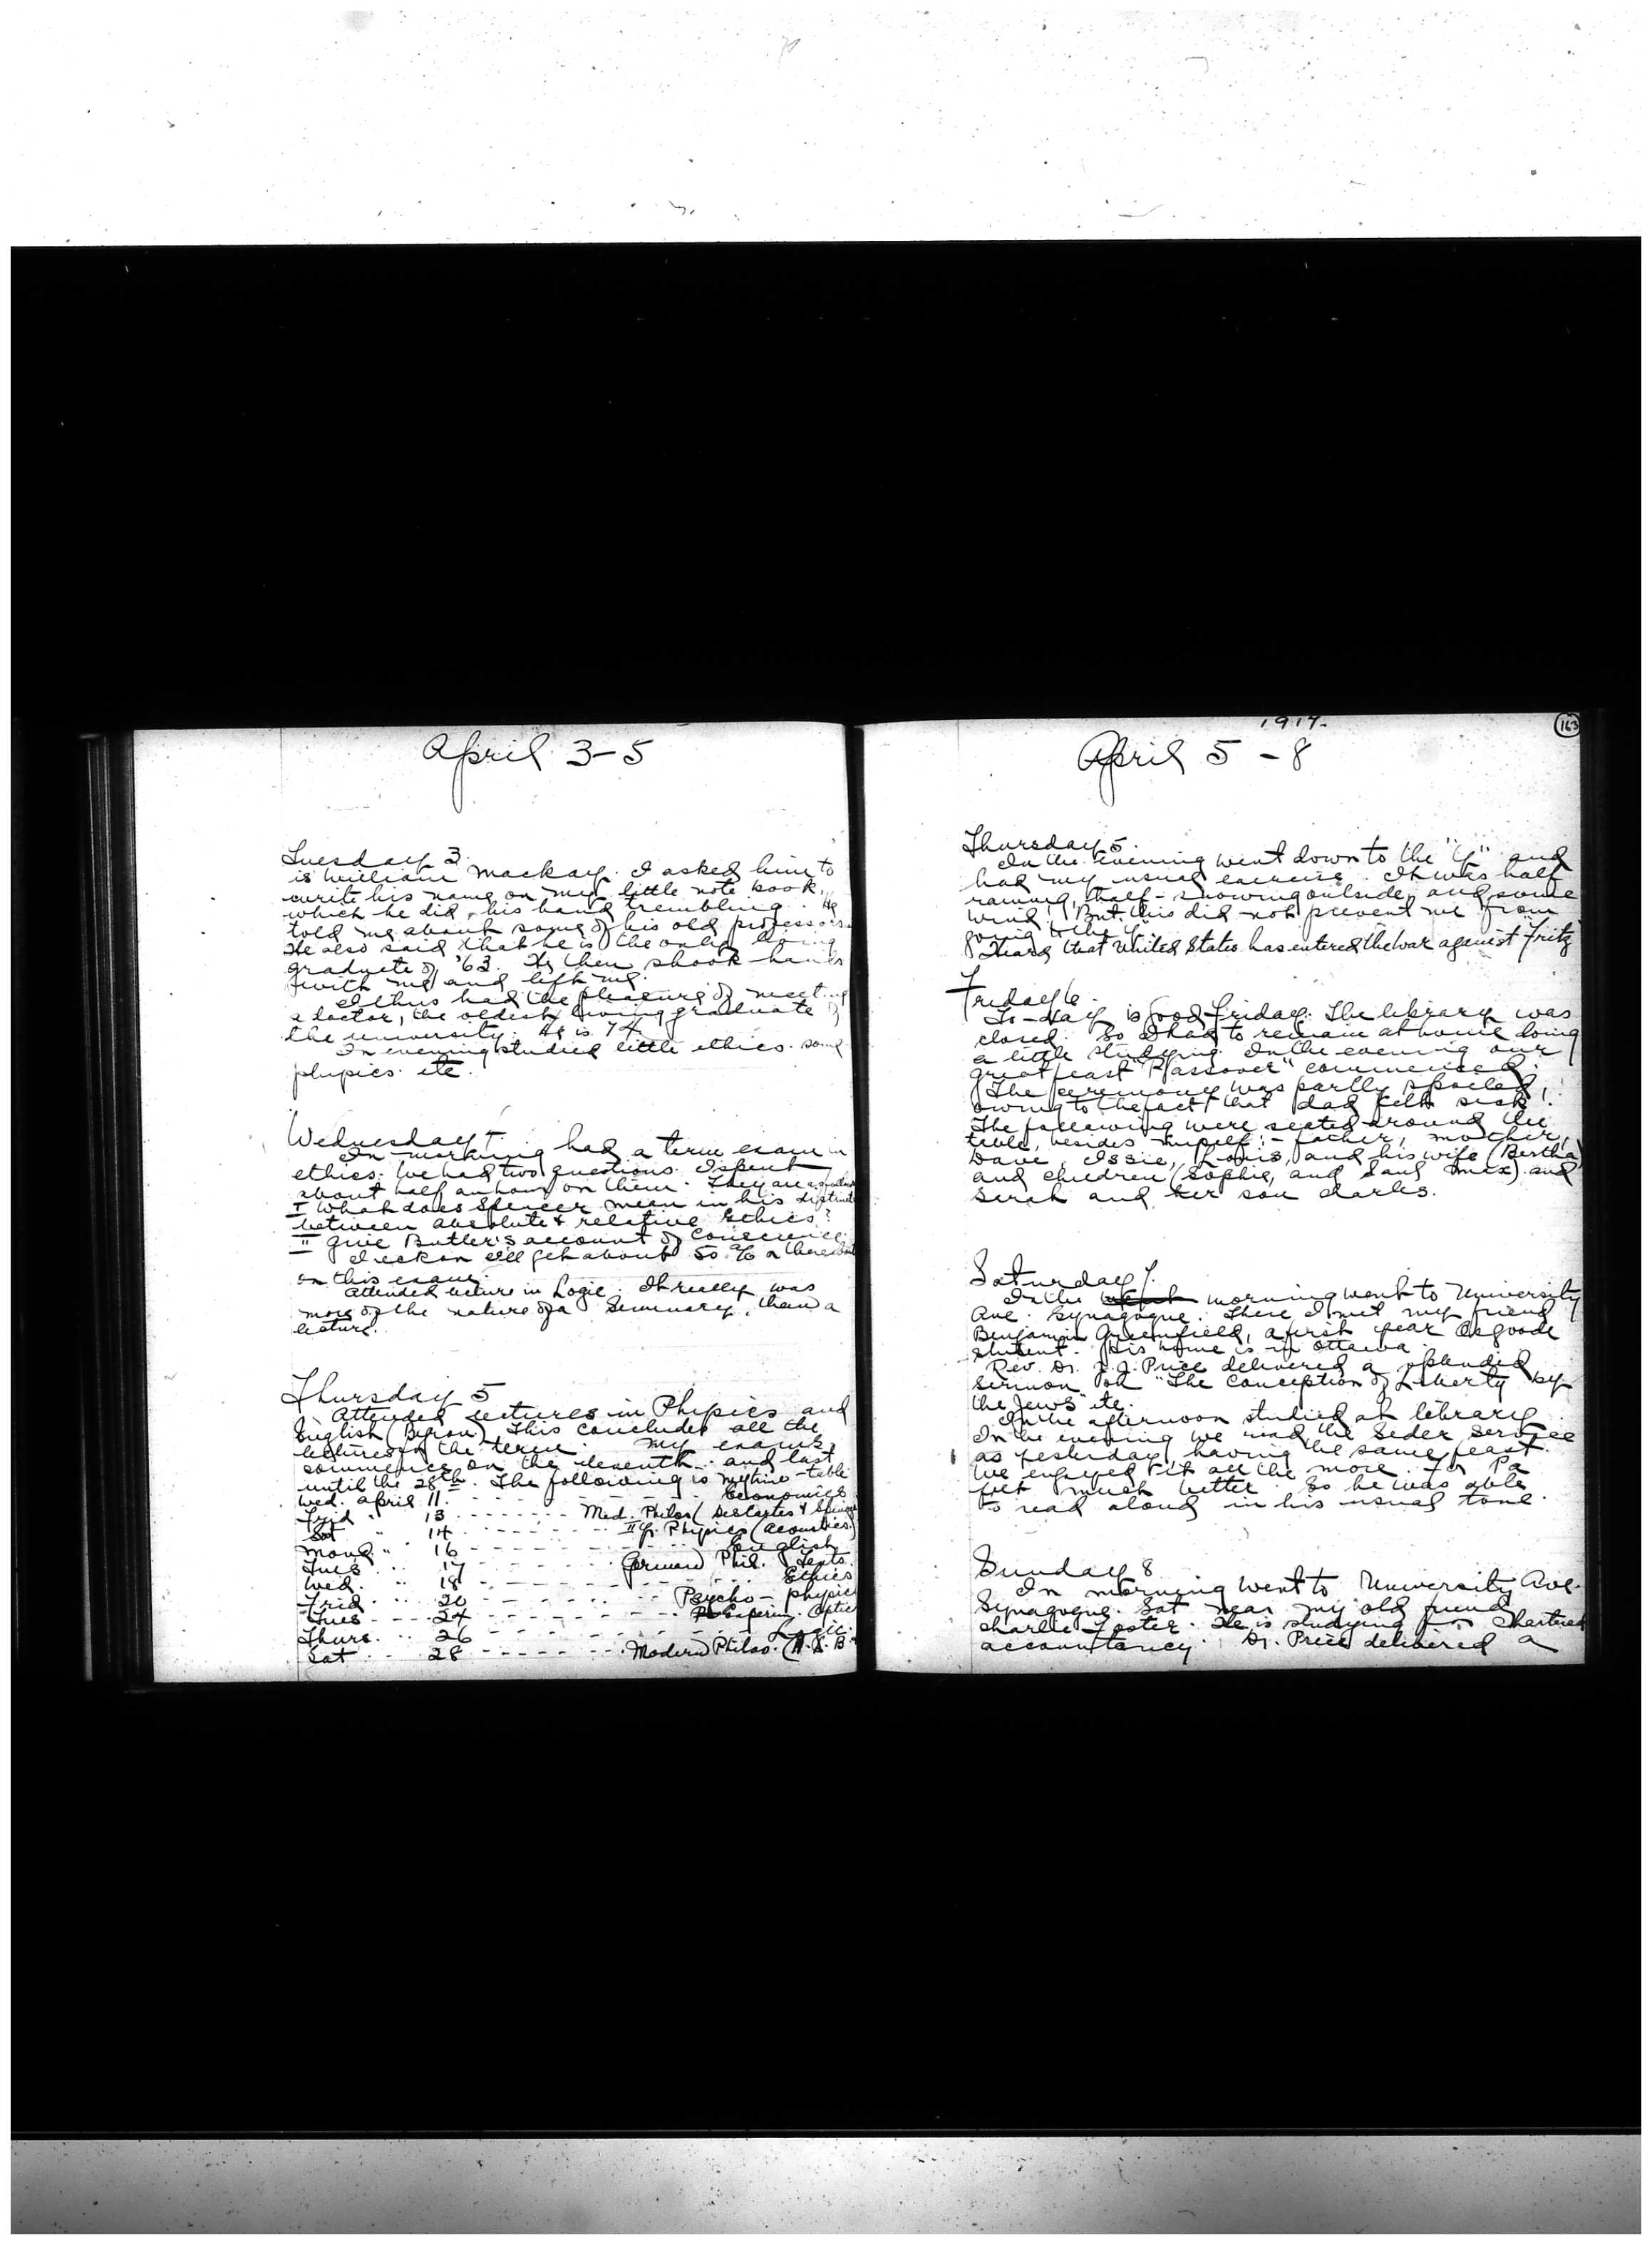 April 3-5
Tuesday 3.
is William Mackay. I asked him to
write his name on my little note book,
which he did, his hand trembling. He
told me about some of his old professors.
He also said that he is the only living
graduate of '63. He then shook hands
with me and left me.
I thus had the pleasure of meeting
a doctor, the oldest living graduate of
the university. He is 74.
In evening studied little ethics. some
physics etc.
Wednesday 4
In morning had a term exam in
ethics. We had two questions. I spent
about half an hour on them. They are
I What does Spencer mean in his
between absolute & relative Ethics?
II give Butler's account of Conscience.
I reckon I'll get about 50 % or
on this exam.
Attended lecture in Logic. It really was
more of the nature of a Seminary, than a
lecture.
Thursday 5
Attended lectures in Physics and
English (Byron). This concludes all the
lectures for the term. My exams
commence on the eleventh and last
until the 28th. The following is my time-table
Wed. April 11. - - - - - - Economics
Frid " 13 - - - - - - Med. Philos (Descartes &
Sat " 14 - - - - - - II yr. Physics (Acoustics)
Mond. " 16 - - - - - - English
Tues " 17 - - - - - - German Phil. Texts.
Wed. " 18 - - - - - - Ethics
Frid " 20 - - - - - - Psycho-physic
Tues - - 24 - - - - - - Experim. Optic
Thurs. " 26 - - - - - - Logic.
Sat - - 28 - - - - - - Modern Philos. (H. S. B.
1917.
163
April 5 - 8
Thursday 5.
In the evening went down to the "Y" and
had my usual exercise. It was half
raining, half-snowing outside, and some
wind. But this did not prevent me from
going to the "Y".
Heard that United States has entered the war against Fritz
Friday 6.
To-day is Good Friday. The library was
closed. So I had to remain at home doing
a little studying. In the evening our
great feast "Passover" commenced.
The ceremony was partly spoiled,
owing to the fact that dad felt sick!
The following were seated around the
table, besides myself:- father, mother,
Dave, Issie, Louis, and his wife (Bertha)
and children (Sophie, and Saul Max) and
Serah and her son charles.
Saturday 7.
In the morning went to University
Ave. Synagogue. There I met my friend
Benjamin Greenfield, a first year Osgoode
student. His home is in Ottawa.
Rev. Dr. J. J. Price delivered a splendid
sermon on "The Conception of Liberty by
the Jews" etc.
In the afternoon studied at library.
In the evening we read the Seder Service
as yesterday, having the same feast.
We enjoyed it all the more for Pa
felt much better. So he was able
to read aloud in his usual tone.
Sunday 8
In morning went to University Ave.
Synagogue. Sat near my old friend
Charlie Foster. He is studying for Chartered
accountancy. Dr. Price delivered a